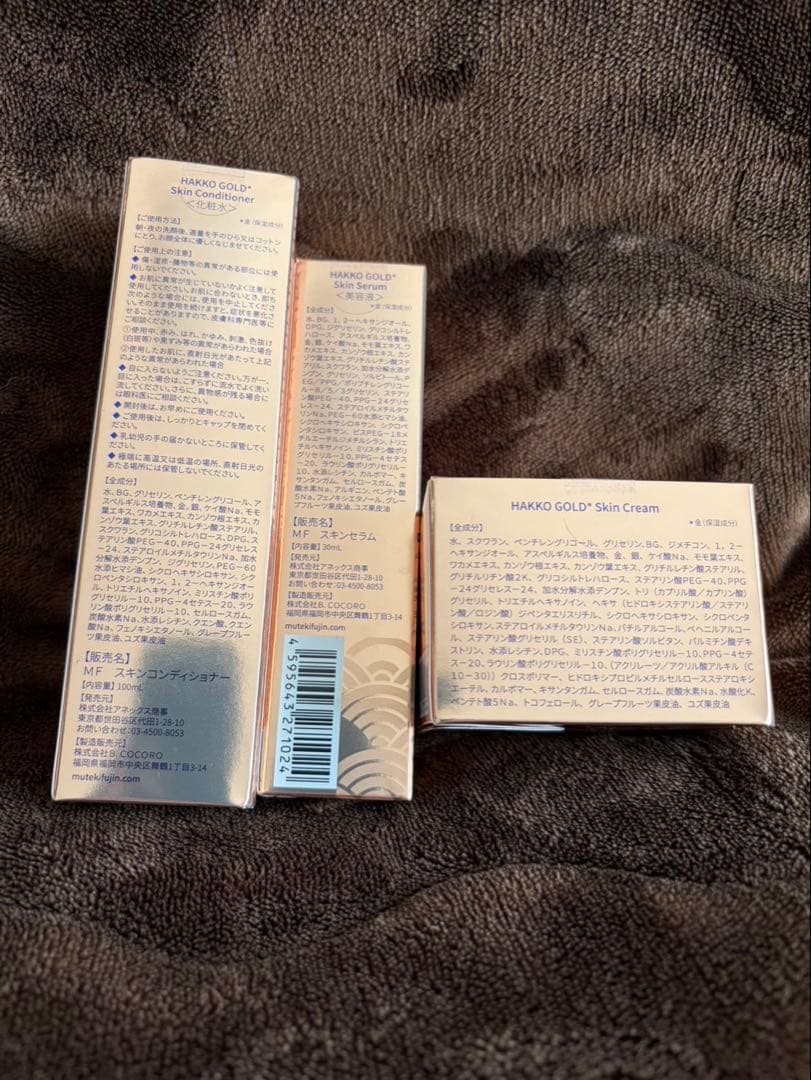 HAKKO GOLD*
Skin Conditioner
＜化粧水＞
*金(保湿成分)
【ご使用方法】
朝・夜の洗顔後、適量を手のひら又はコットン
にとり、お顔全体に優しくなじませてください。
【ご使用上の注意】
◆傷・湿疹・腫物等の異常がある部位には使
用しないでください。
◆お肌に異常が生じていないかよく注意して
使用してください。お肌に合わないとき、即ち
次のような場合には、使用を中止してくださ
い。そのまま使用を続けますと、症状を悪化さ
せることがありますので、皮膚科専門医等に
ご相談ください。
①使用中、赤み、はれ、かゆみ、刺激、色抜け
(白斑等)や黒ずみ等の異常があらわれた場合
②使用したお肌に、直射日光があたって上記
のような異常があらわれた場合
◆目に入らないようご注意ください。万が一、
目に入った場合は、こすらずに流水でよく洗い
流してください。さらに、異物感が残る場合に
は眼科医にご相談ください。
◆開封後は、お早めにご使用ください。
◆ご使用後は、しっかりとキャップを閉めてく
ださい。
◆乳幼児の手の届かないところに保管してく
ださい。
◆極端に高温又は低温の場所、直射日光の
あたる場所には保管しないでください。
【全成分】
水、BG、グリセリン、ペンチレングリコール、ア
スペルギルス培養物、金、銀、ケイ酸Na、モモ
葉エキス、ワカメエキス、カンゾウ根エキス、カ
ンゾウ葉エキス、グリチルレチン酸ステアリル、
スクワラン、グリコシルトレハロース、DPG、ス
テアリン酸PEG-40、PPG-24グリセレス
-24、ステアロイルメチルタウリンNa、加水
分解水添デンプン、ジグリセリン、PEG-60
水添ヒマシ油、シクロヘキサシロキサン、シク
ロペンタシロキサン、1,2-ヘキサンジオー
ル、トリエチルヘキサノイン、ミリスチン酸ポ
リグリセリル-10、PPG-4セテス-20、ラウ
リン酸ポリグリセリル-10、セルロースガム、
炭酸水素Na、水添レシチン、クエン酸、クエン
酸Na、フェノキシエタノール、グレープフルー
ツ果皮油、ユズ果皮油
【販売名】
MF スキンコンディショナー
【内容量】100mL
【発売元】
株式会社アネックス商事
東京都世田谷区代田1-28-10
お問い合わせ：03-4500-8053
【製造販売元】
株式会社B.COCORO
福岡県福岡市中央区舞鶴1丁目3-14
mutekifujin.com
HAKKO GOLD*
Skin Serum
＜美容液＞
*金(保湿成分)
【全成分】
水、BG、1,2-ヘキサンジオール、
DPG、ジグリセリン、グリコシルトレ
ハロース、アスペルギルス培養物、
金、銀、ケイ酸Na、モモ葉エキス、ワ
カメエキス、カンゾウ根エキス、カン
ゾウ葉エキス、グリチルレチン酸ステ
アリル、スクワラン、加水分解水添デ
ンプン、グリセリン、ソルビトール、P
EG/PPG/ポリブチレングリコー
ル-8/5/3グリセリン、ステアリ
ン酸PEG-40、PPG-24グリセレ
ス-24、ステアロイルメチルタウ
リンNa、PEG-60水添ヒマシ油、
シクロヘキサシロキサン、シクロペン
タシロキサン、ビスPEG-18メ
チルエーテルジメチルシラン、トリエ
チルヘキサノイン、ミリスチン酸ポリ
グリセリル-10、PPG-4セテス
-20、ラウリン酸ポリグリセリル-
10、水添レシチン、カルボマー、キ
サンタンガム、セルロースガム、炭
酸水素Na、アルギニン、ペンテト酸
5Na、フェノキシエタノール、グレー
プフルーツ果皮油、ユズ果皮油
【販売名】
MF スキンセラム
【内容量】30mL
【発売元】
株式会社アネックス商事
東京都世田谷区代田1-28-10
お問い合わせ：03-4500-8053
【製造販売元】
株式会社B.COCORO
福岡県福岡市中央区舞鶴1丁目3-14
mutekifujin.com
4595643271024
HAKKO GOLD* Skin Cream
*金(保湿成分)
【全成分】
水、スクワラン、ペンチレングリコール、グリセリン、BG、ジメチコン、1,2-
ヘキサンジオール、アスペルギルス培養物、金、銀、ケイ酸Na、モモ葉エキス、
ワカメエキス、カンゾウ根エキス、カンゾウ葉エキス、グリチルレチン酸ステアリル、
グリチルリチン酸2K、グリコシルトレハロース、ステアリン酸PEG-40、PPG
-24グリセレス-24、加水分解水添デンプン、トリ(カプリル酸/カプリン酸)
グリセリル、トリエチルヘキサノイン、ヘキサ(ヒドロキシステアリン酸/ステアリ
ン酸/ロジン酸)ジペンタエリスリチル、シクロヘキサシロキサン、シクロペンタ
シロキサン、ステアロイルメチルタウリンNa、バチルアルコール、ベヘニルアルコー
ル、ステアリン酸グリセリル(SE)、ステアリン酸ソルビタン、パルミチン酸デキ
ストリン、水添レシチン、DPG、ミリスチン酸ポリグリセリル-10、PPG-4セテ
ス-20、ラウリン酸ポリグリセリル-10、(アクリレーツ/アクリル酸アルキル(C
10-30))クロスポリマー、ヒドロキシプロピルメチルセルロースステアロキシ
エーテル、カルボマー、キサンタンガム、セルロースガム、炭酸水素Na、水酸化K、
ペンテト酸5Na、トコフェロール、グレープフルーツ果皮油、ユズ果皮油